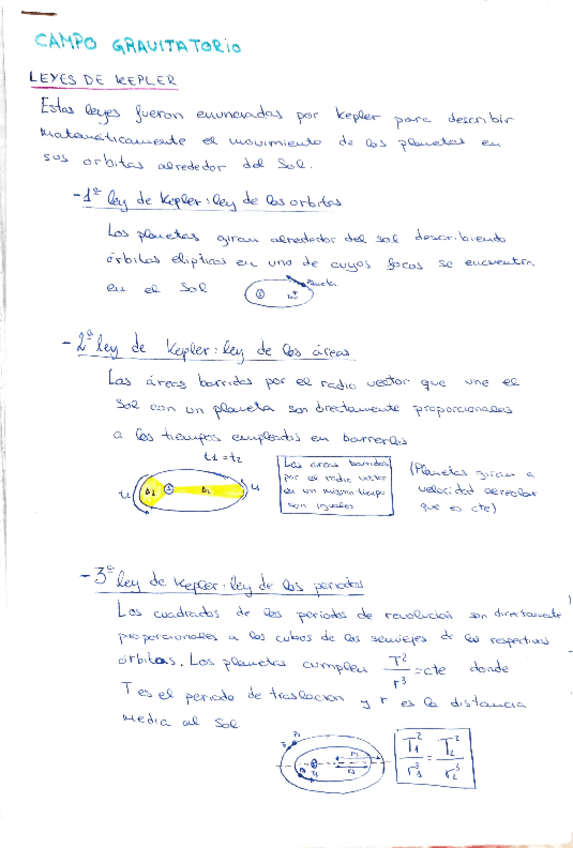 CAMPO GRAVITATORIO
LEYES DE KEPLER
Estas leyes fueron enunciadas por Kepler para describir
matemáticamente el movimiento de los planetas en
sus orbitas alrededor del Sol.
- 1ª ley de Kepler: ley de las orbitas
Los planetas giran alrededor del sol describiendo
órbitas elípticas en uno de cuyos focos se encuentra
en el Sol
Planeta
- 2ª ley de Kepler: ley de las áreas
Las áreas barridas por el radio vector que une el
Sol con un planeta son directamente proporcionales
a los tiempos empleados en barrerlos
t1 = t2
Las areas barridas
por el radio vector
en un mismo tiempo
son iguales
(Planetas giran a
velocidad aereolar
que es cte)
- 3ª ley de Kepler: ley de los periodos
Los cuadrados de los periodos de revolución son directamente
proporcionales a los cubos de los semiejes de las respectivas
órbitas. Los planetas cumplen T²/r³ = cte donde
T es el periodo de traslacion y r es la distancia
media al Sol
T₁²/r₁³ = T₂²/r₂³